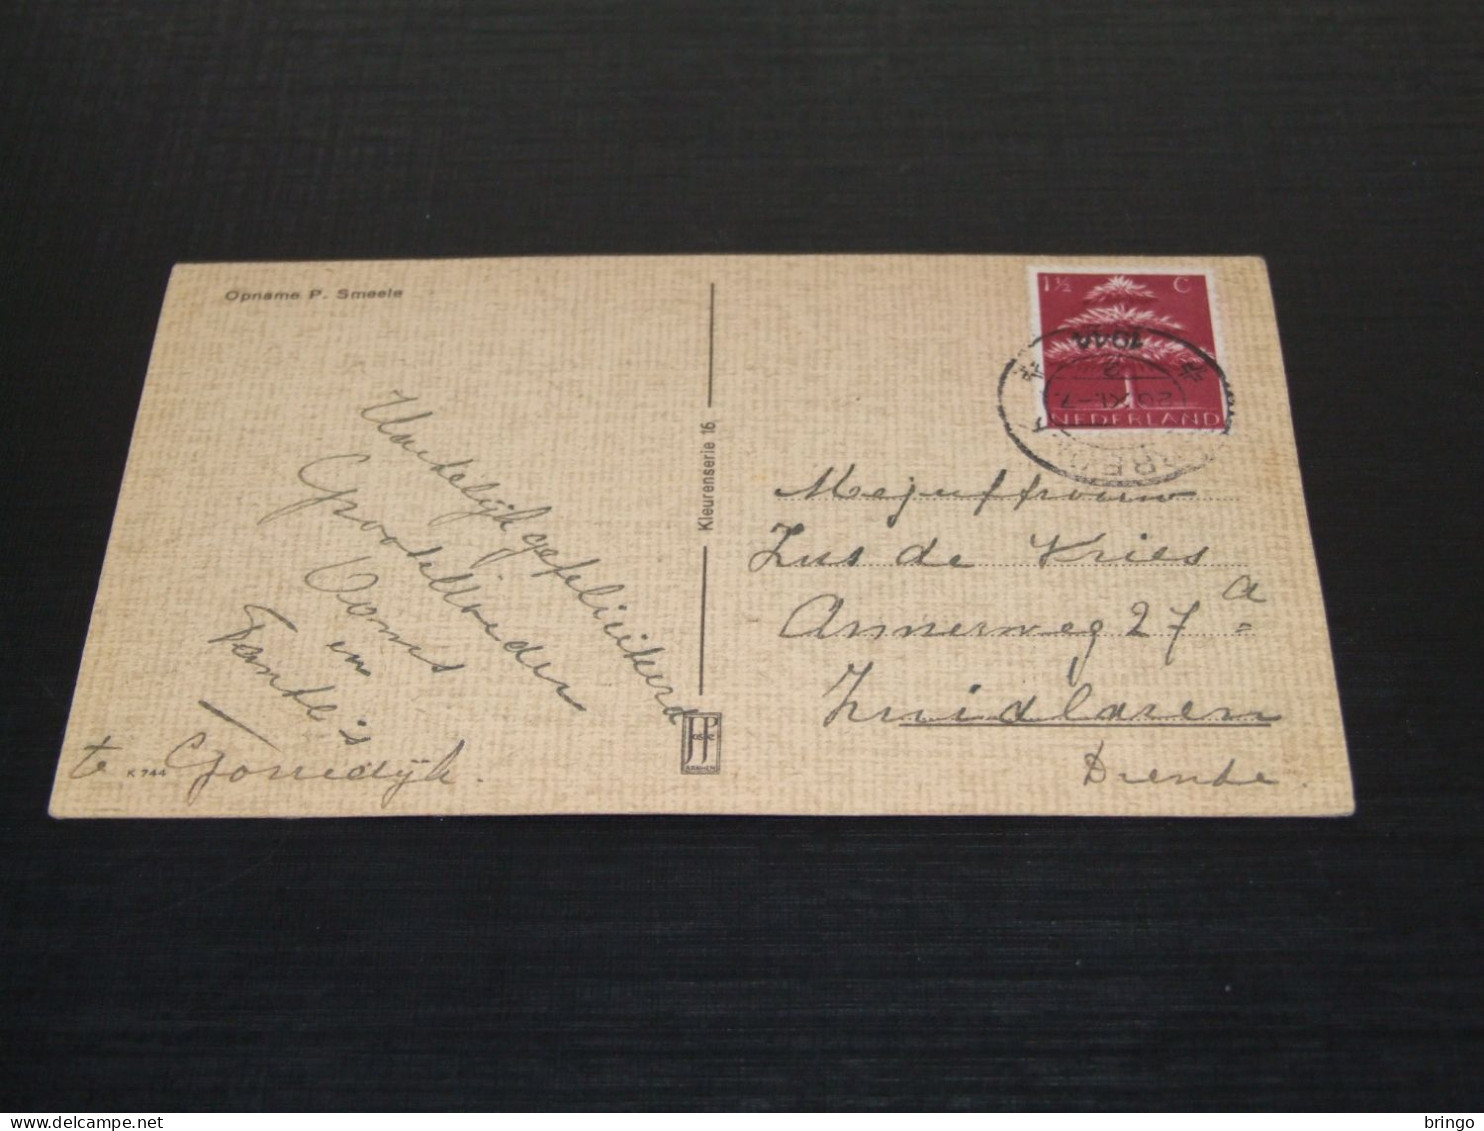 Opname P. Smeele
Hartelijk gefeliciteerd
Grootmoeder
Ooms
en
Tante's
te Gorredijk.
K 744
Kleurenserie 16
JP
1½ C
NEDERLAND
1944
2
26.XI.-7
Mejuffrouw
Zus de Vries
Annerweg 27 a
Zuidlaren
Drente.
delcampe.net
bringo